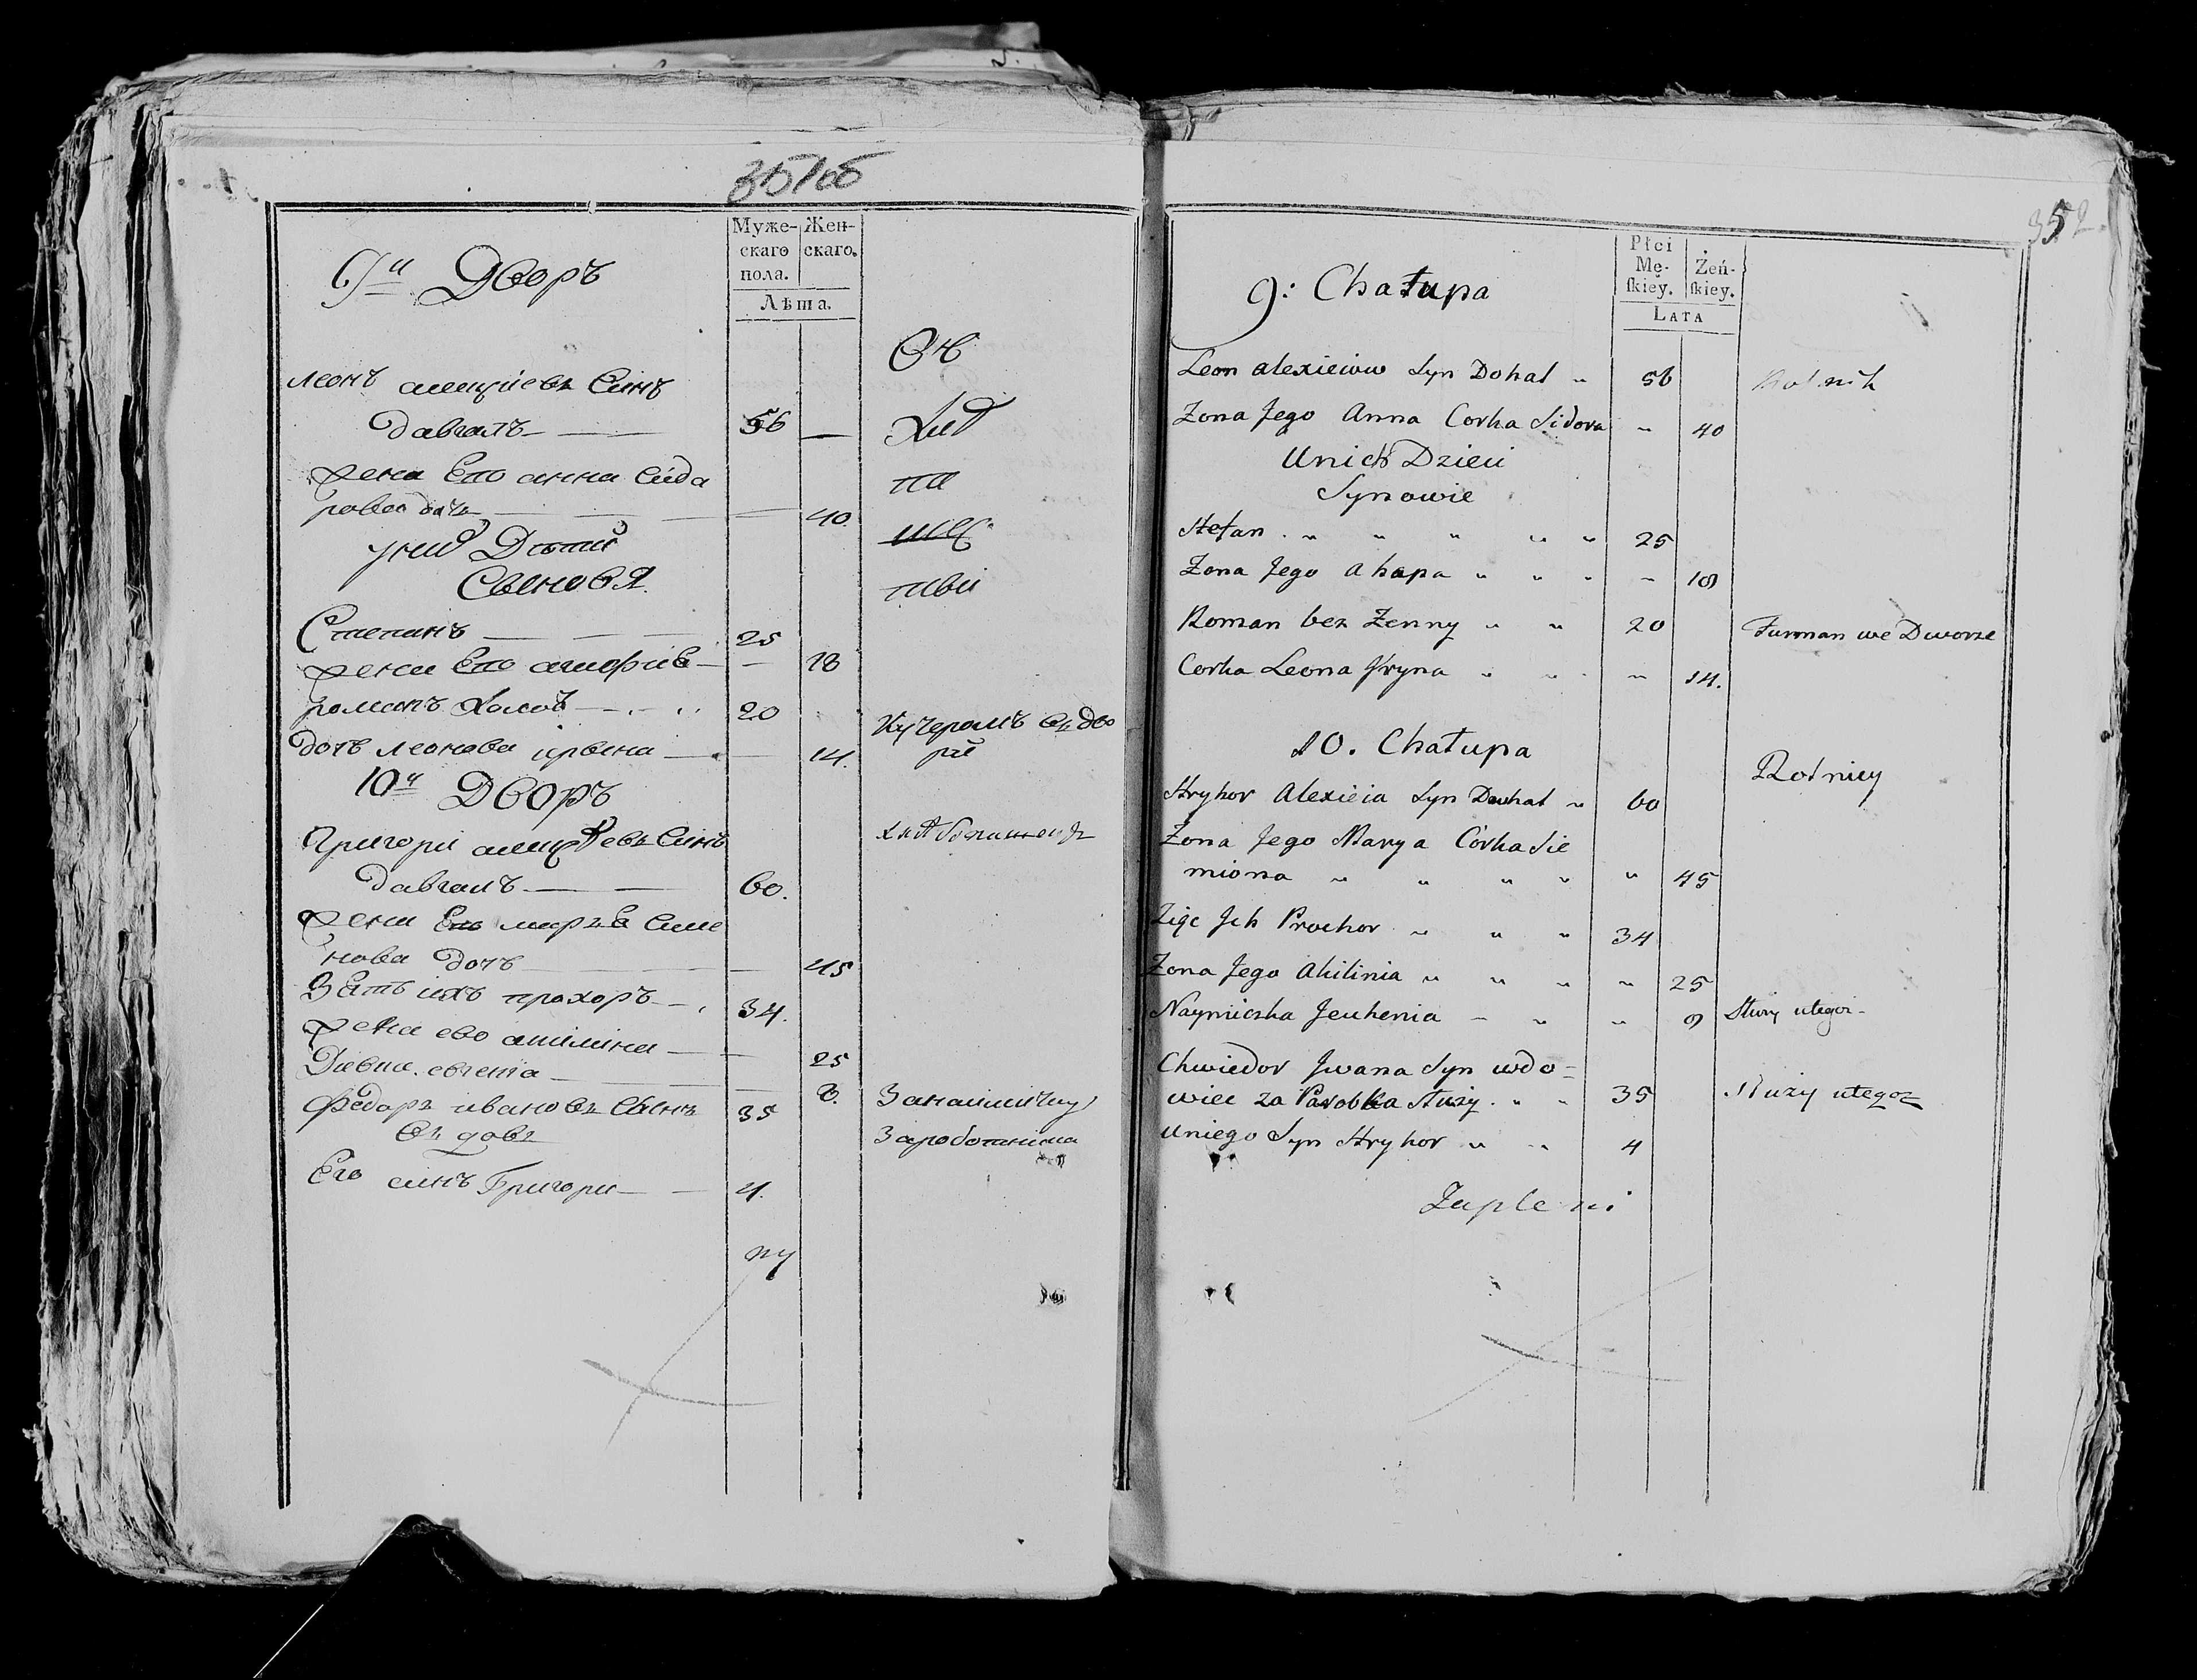 351об
Муже-
скаго
пола.
Жен-
скаго.
Лѣта.
9й Дворъ
Леонъ алекціевъ Синъ
давгалъ 56
жена Его анна Сида
рова дочь 40
у них Дѣти
Сынов҃я
Степанъ 25
жена Его агафия 18
романъ Холос 20
Кучеромъ въ дво
ре
дочь леонова ирына 14.
10й Дворъ
Григори Синъ
давгалъ 60.
жена Его Семе
нова дочь 45
Зять ихъ прохоръ 34.
жена ево акилина 25
евгения 8.
Федоръ ивановъ Сынъ 35
въдовъ
Его синъ Григори 4.
352.
Płci
Mę-
skiey.
Żeń-
skiey.
LATA
9: Chałupa
Leon alexieiow Syn Dohal „ 56 Rolnik
Zona Jego Anna Corka Sidora „ 40
U nich Dzieci
Synowie
Stefan „ „ „ „ „ 25
Zona Jego ahapa „ „ „ „ 18
Roman bez Zenny „ „ 20 Furman we Dworze
Corka Leona Jryna „ „ „ 14.
10. Chałupa
Rolnicy
Hryhor Alexieia Syn Dauhal „ 60
Zona Jego Marya Córka Sie
miona „ „ „ „ „ 45
Zięc Jch Prochor „ „ „ 34
Zona Jego Akilinia „ „ „ „ 25
Naymiczka Jeuhenia „ „ „ 8 Służy utegoż
Chwiedor Jwana Syn wdo=
wiec za Parobka służy „ „ 35 Służy utegoż
Uniego Syn Hryhor „ „ 4